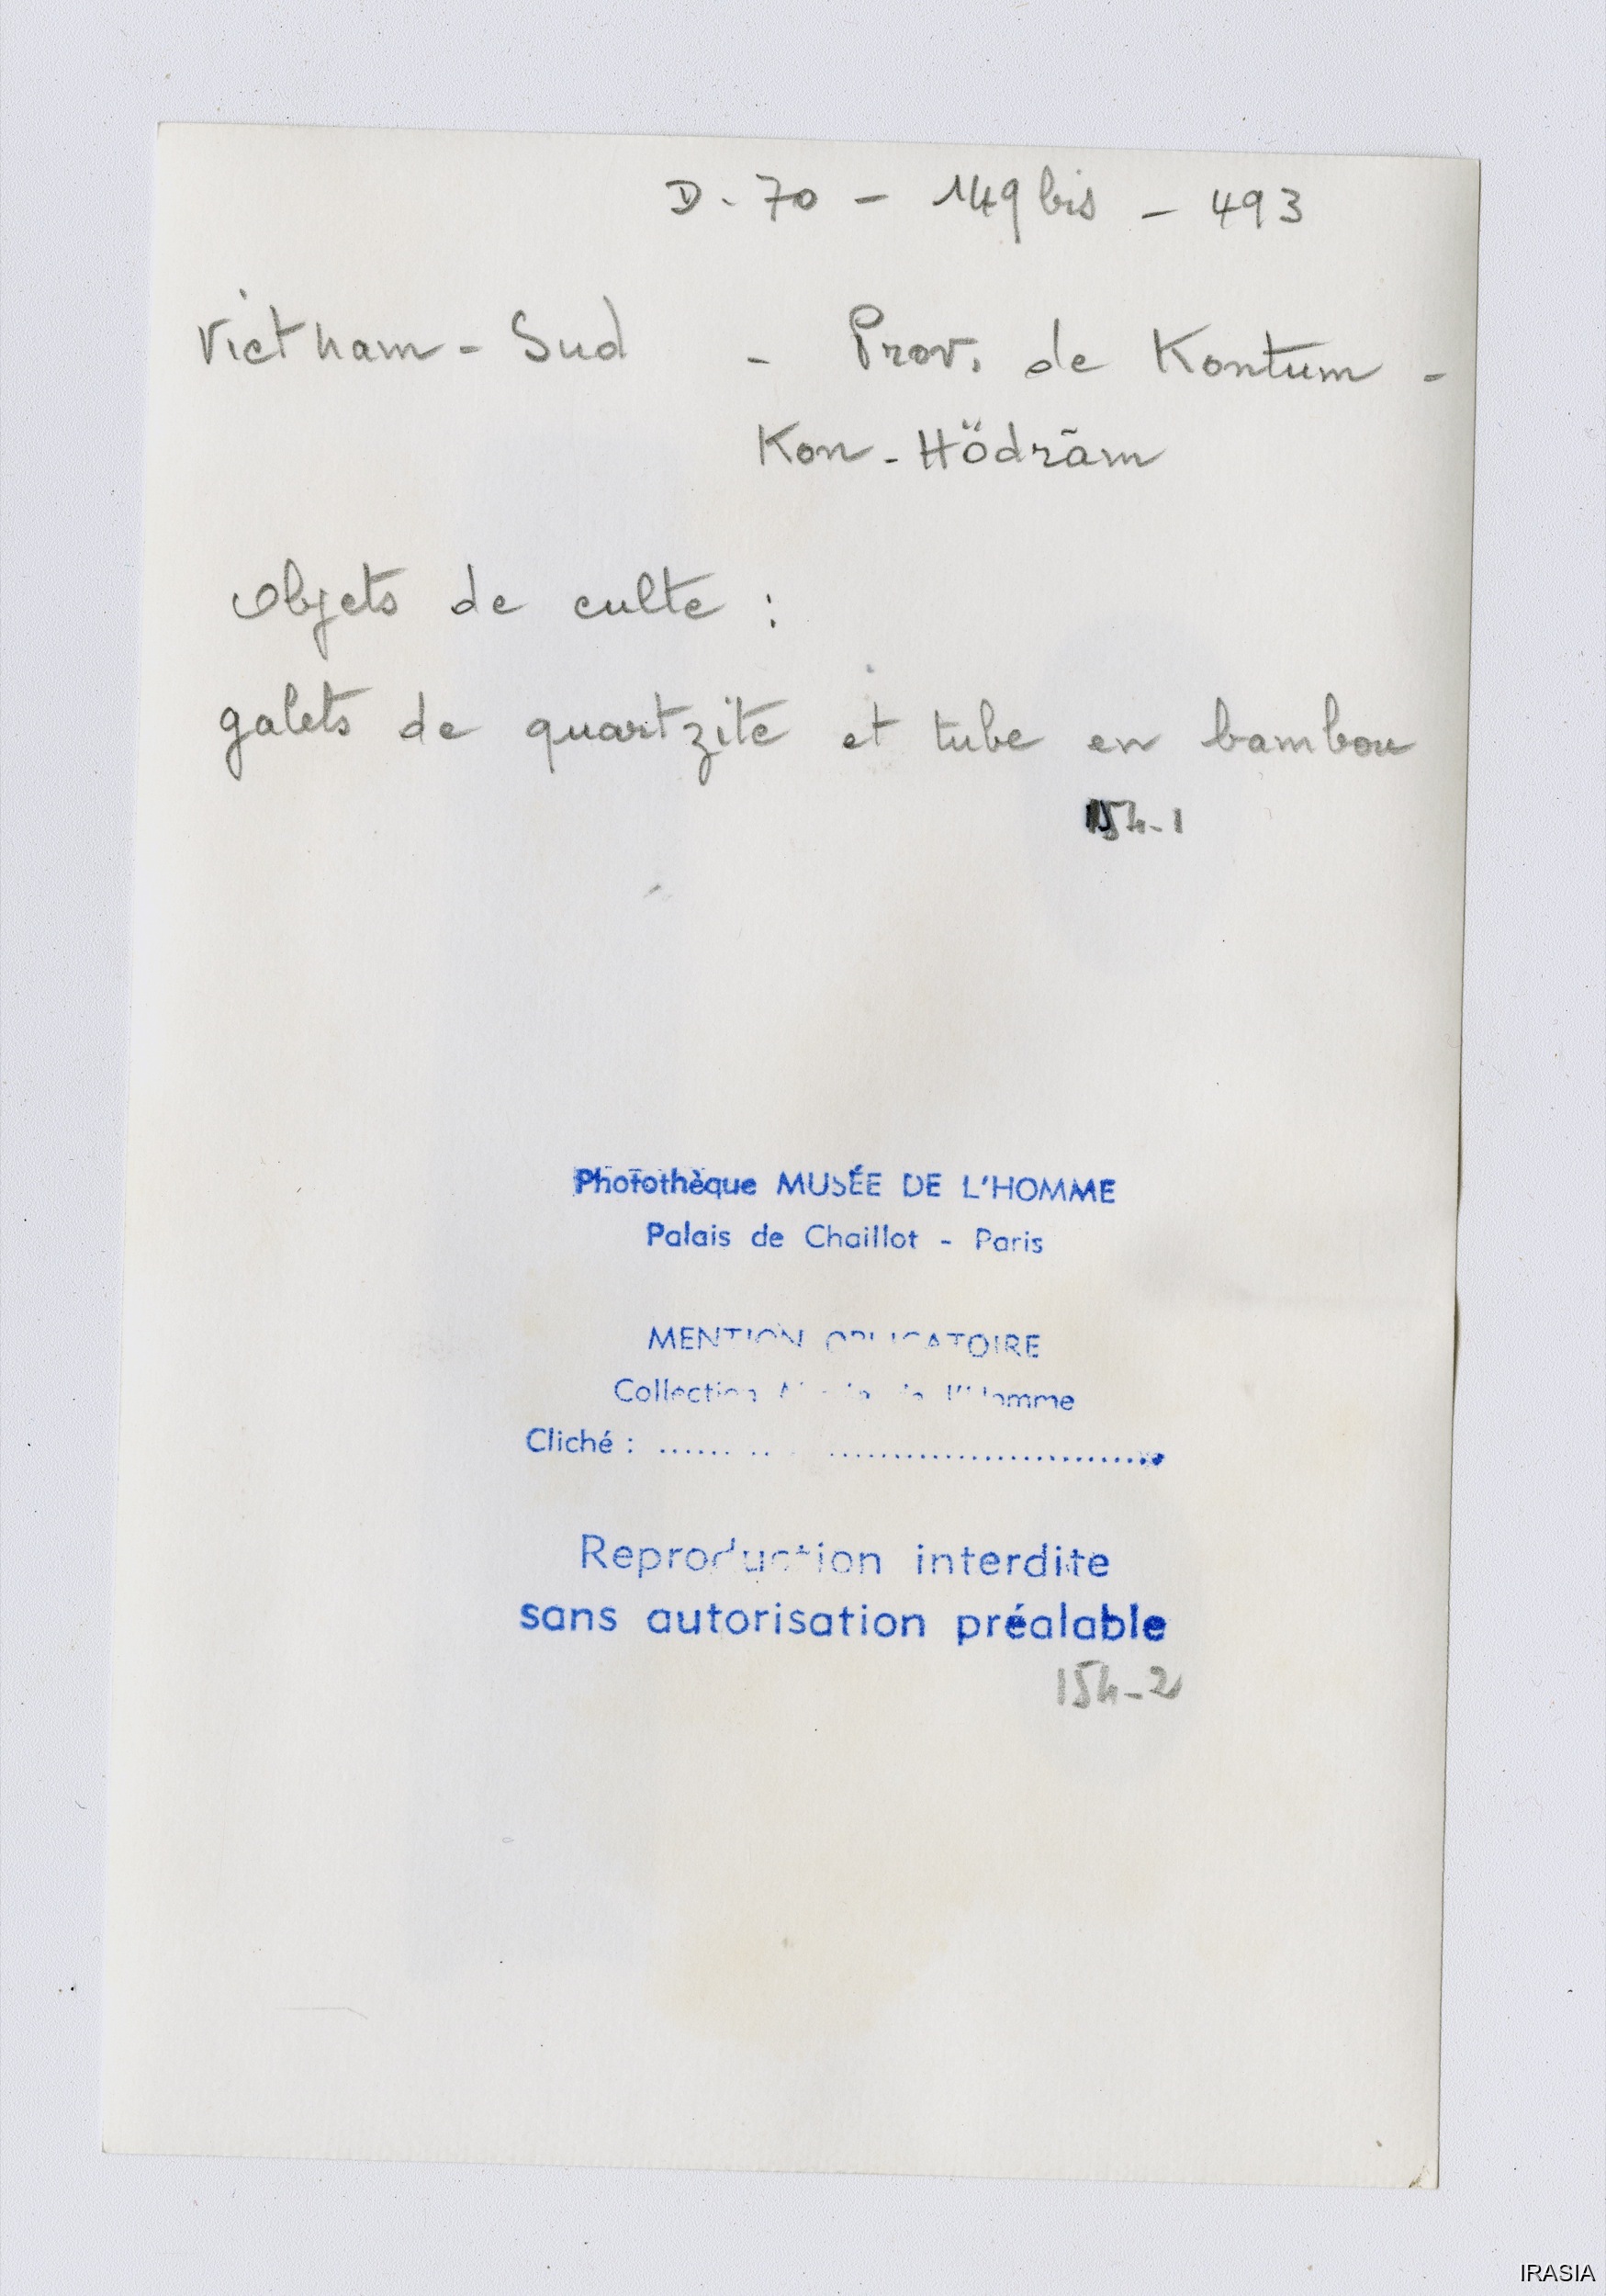 D. 70 - 149 bis - 493
Vietnam - Sud - Prov. de Kontum -
Kon - Hödrām
Objets de culte :
galets de quartzite et tube en bambou
154-1
Photothèque MUSÉE DE L'HOMME
Palais de Chaillot - Paris
MENTION OBLIGATOIRE
Collection Musée de l'Homme
Cliché : ........................................
Reproduction interdite
sans autorisation préalable
154-2
IRASIA